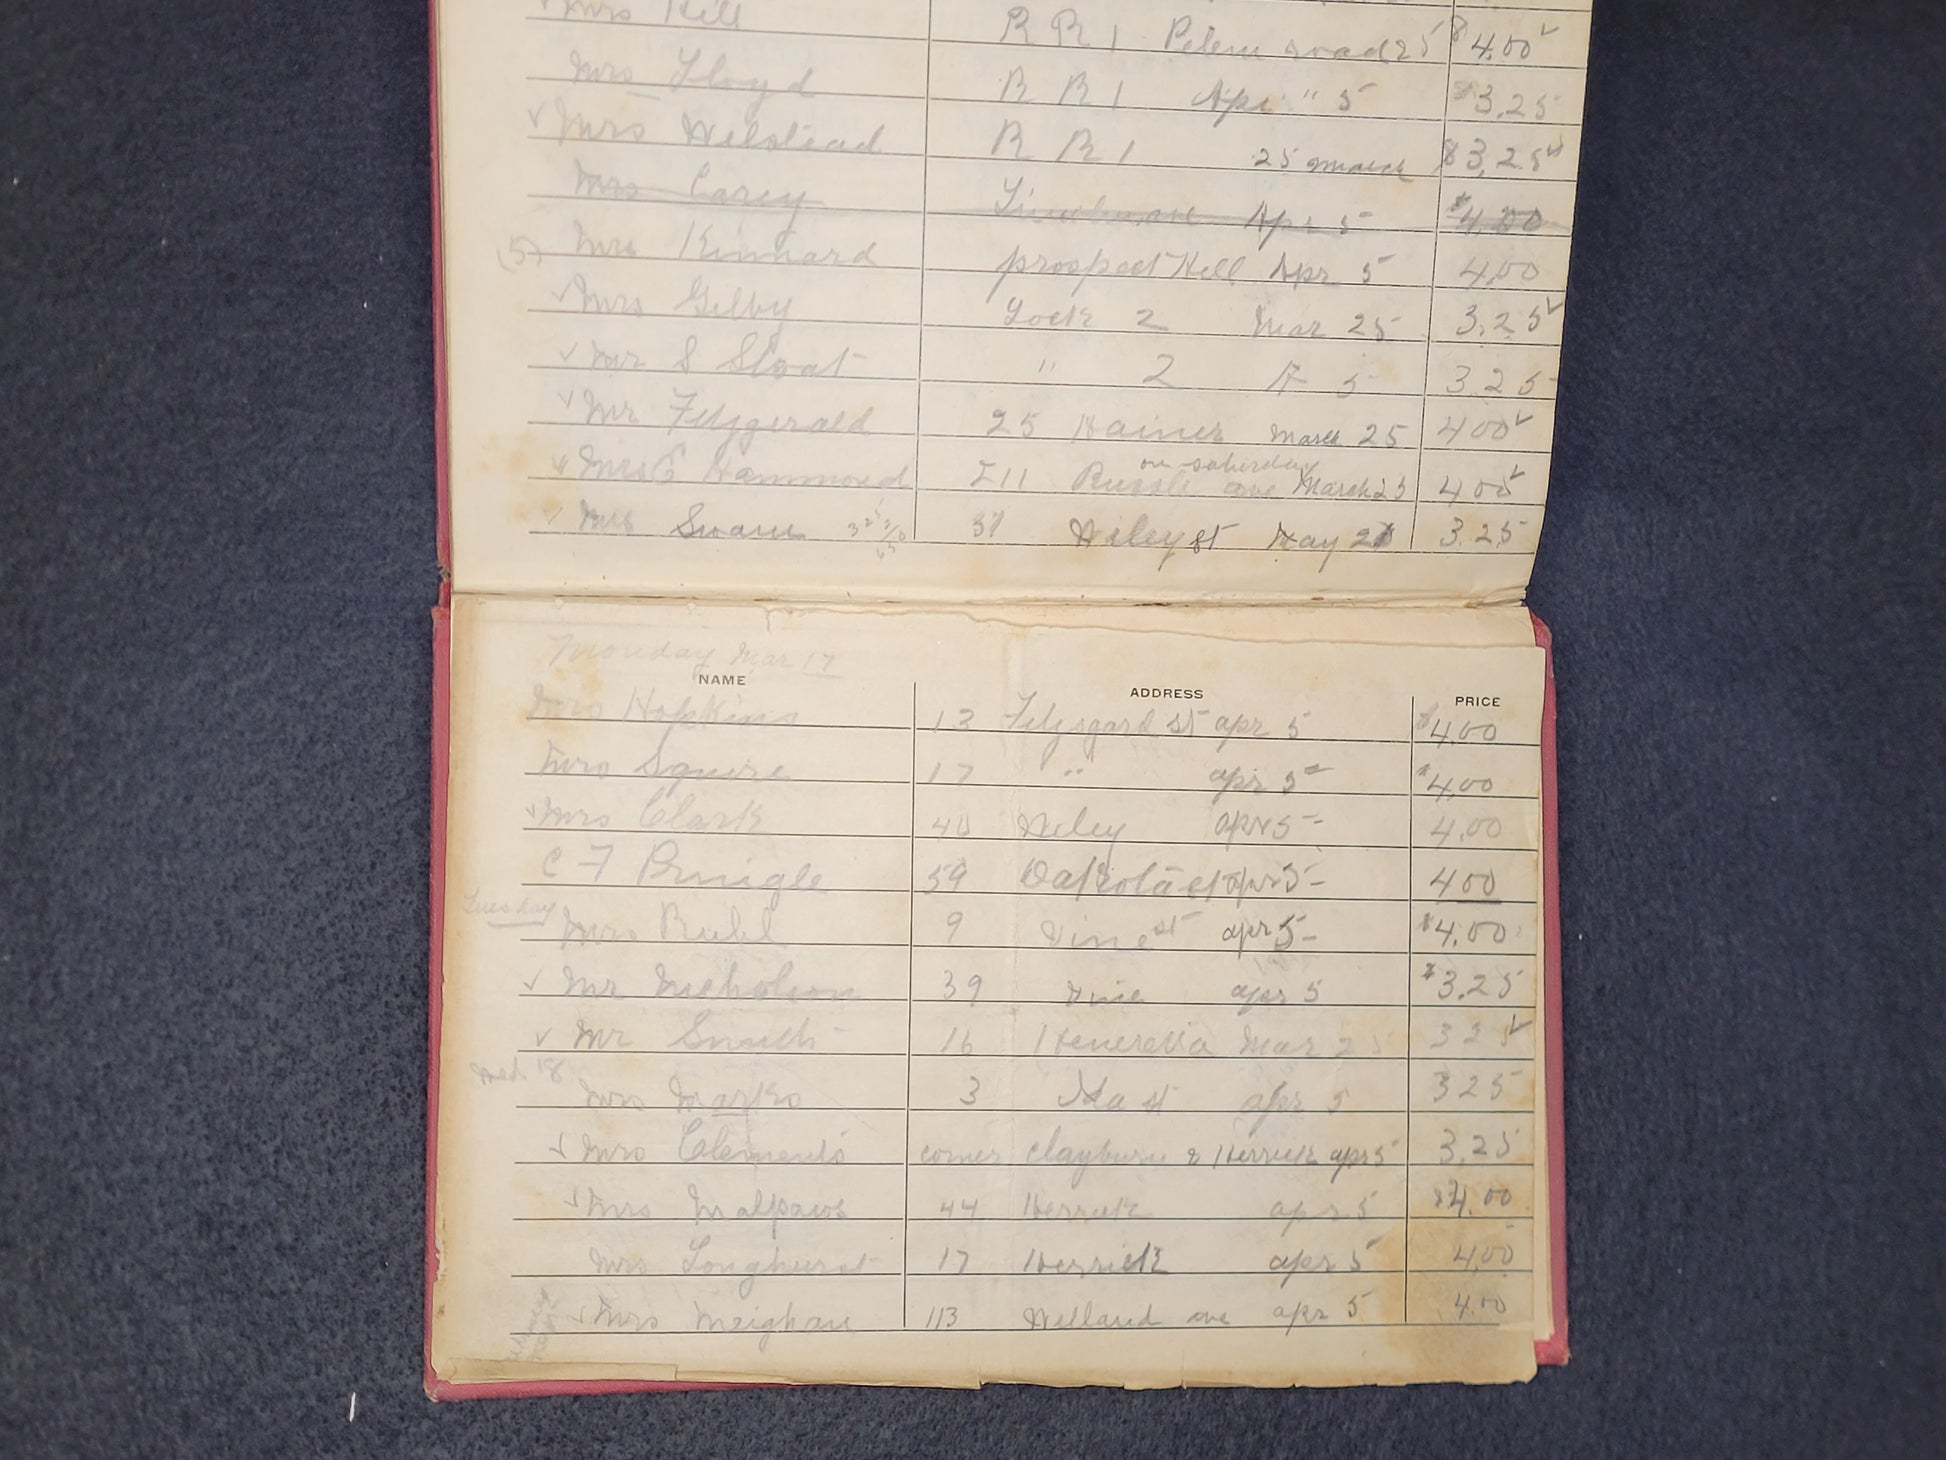 Mrs Hill R R 1 Pelem road 25 $4.00 ✓
Mrs Lloyd R R 1 Apr " 5 $3.25
✓ Mrs Helstead R R 1 25 march $3.25 ✓
Mrs Carey Apr 5 $4.00
(5) Mrs Kinnard prospect Hill Apr 5 4.00
✓ Mrs Gilby Lock 2 Mar 25 3.25 ✓
✓ Mr S Sloat " 2 A 5 3.25
✓ Mr Fitzgerald 25 Hainer March 25 4 00 ✓
on saturday
✓ Mrs E Hammond 211 ave March 25 4 00 ✓
✓ Mrs Swann 37 Wiley st May 3.25
Monday Mar 17
NAME ADDRESS PRICE
Mrs Hopkins 13 Fitzsgard st apr 5 $4.00
Mrs Squire 17 " apr 5 $4.00
✓ Mrs Clark 40 Wiley apr 5 - 4.00
C F Pringle 59 Dakota st apr 5 - 4 00
Tuesday
Mrs Buhl 9 Vine st apr 5 - $4.00
✓ Mr Nicholson 39 Vine apr 5 $3.25
✓ Mr Smith 16 Heneretta Mar 25 3 25 ✓
Wed 18
Mrs Marko 3 st apr 5 3 25
✓ Mrs Clements corner Clayburn & Herrick apr 5 3.25
✓ Mrs Malpaws 44 Herrick apr 5 $4.00
Mrs Longhurst 17 Herrick apr 5 4.00
✓ Mrs Meighan 113 Welland ave apr 5 4.00